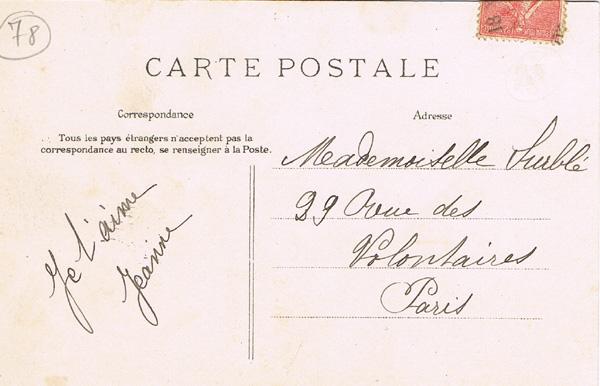 78
CARTE POSTALE
Correspondance
Tous les pays étrangers n'acceptent pas la
correspondance au recto, se renseigner à la Poste.
Je t'aime
Jeanne
Adresse
Mademoiselle Surblé
29 Rue des
Volontaires
Paris